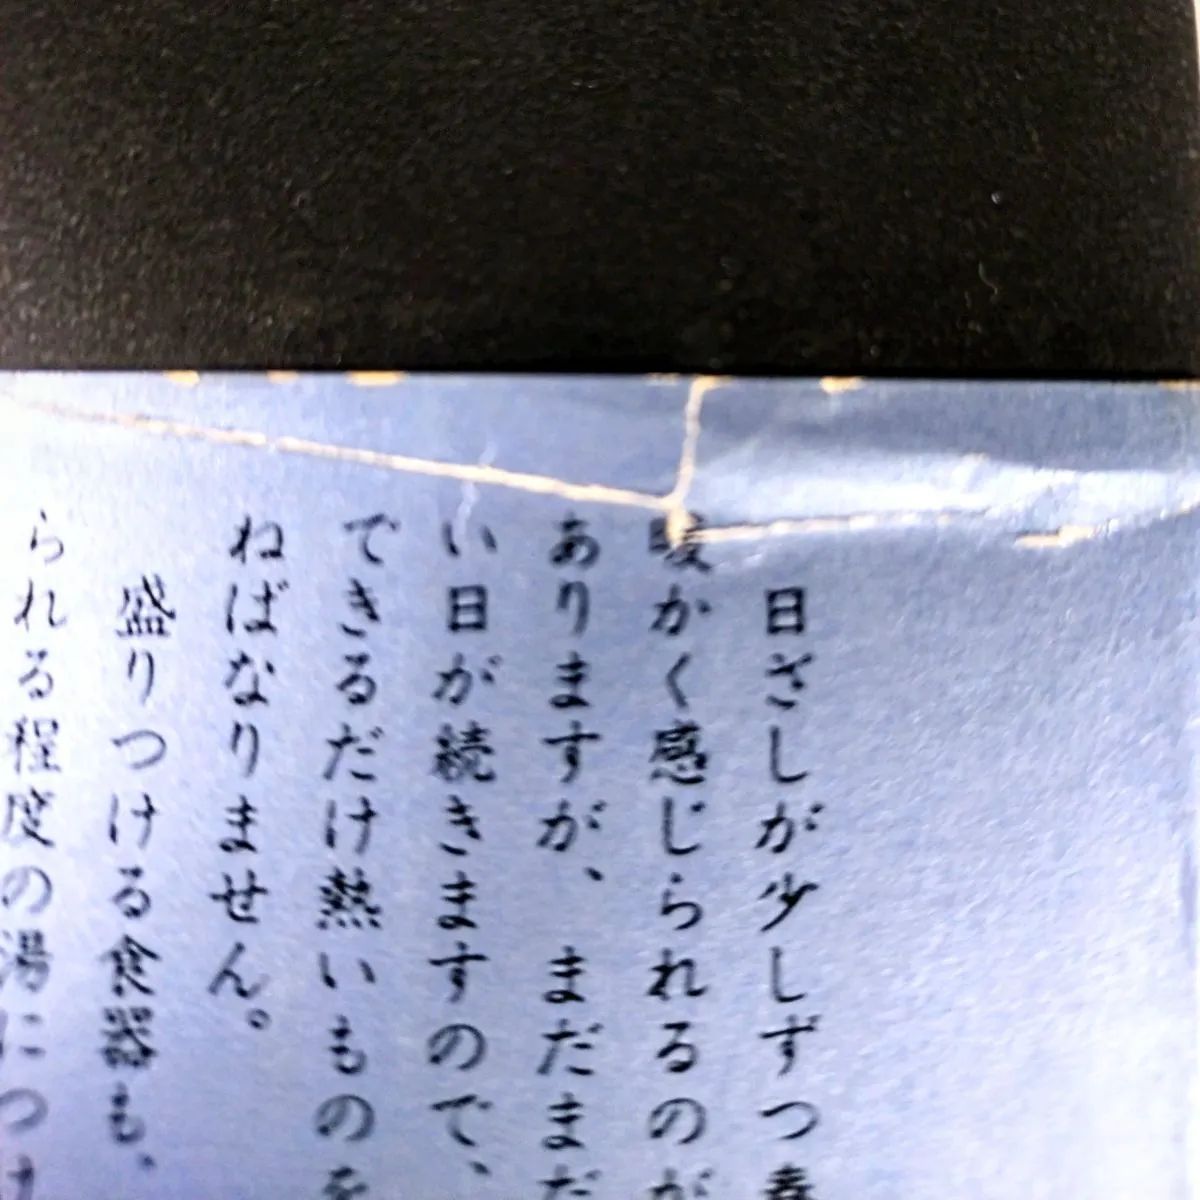 日ざしが少しずつ春
暖かく感じられるのが
ありますが、まだまだ
い日が続きますので、
できるだけ熱いものを
ねばなりません。
盛りつける食器も、
られる程度の湯につけ